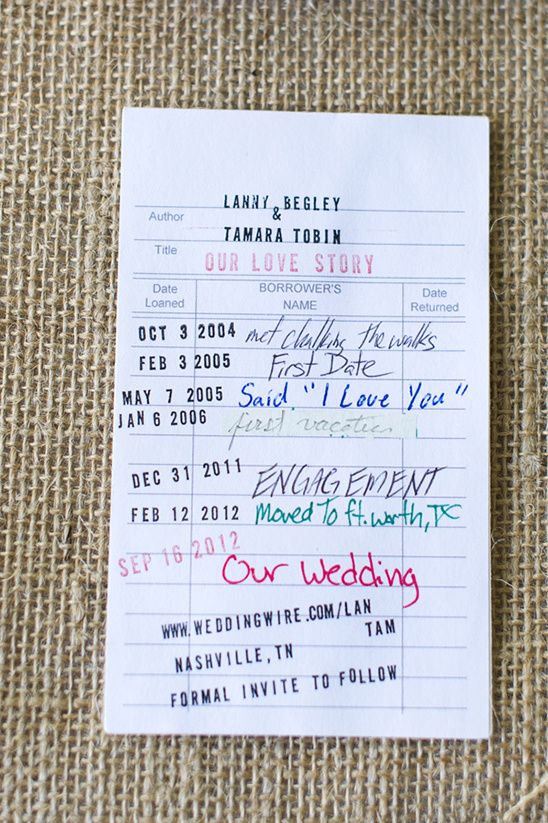 LANNY BEGLEY
Author &
TAMARA TOBIN
Title
OUR LOVE STORY
Date Loaned BORROWER'S NAME Date Returned
OCT 3 2004 met chalking the walks
FEB 3 2005 First Date
MAY 7 2005 Said "I Love You"
JAN 6 2006 first vacation
DEC 31 2011 ENGAGEMENT
FEB 12 2012 Moved To ft. worth, TX
SEP 16 2012 Our Wedding
WWW.WEDDINGWIRE.COM/LAN
TAM
NASHVILLE, TN
FORMAL INVITE TO FOLLOW